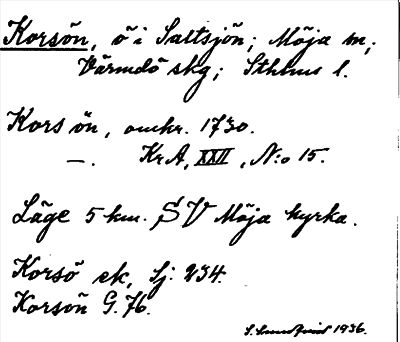 Korsön, ö i Saltsjön; Möja sn,
Värmdö skg; Sthlms l.
Kors ön, omkr. 1730.
—. KrA, XXII, N:o 15.
Läge 5 km. SV Möja kyrka.
Korsö ek, Sj: 234.
Korsön G. 76.
S. Lundqvist 1936.